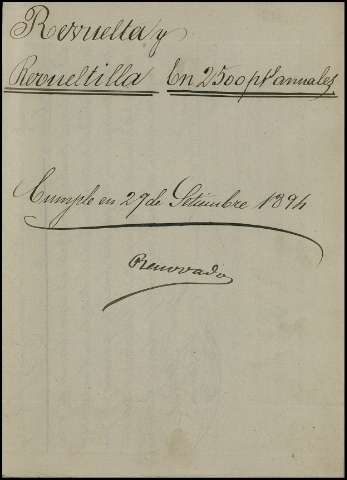 Revuelta y
Revueltilla En 2500 pts annales
Cumple en 29 de Setiembre 1894
Renovado